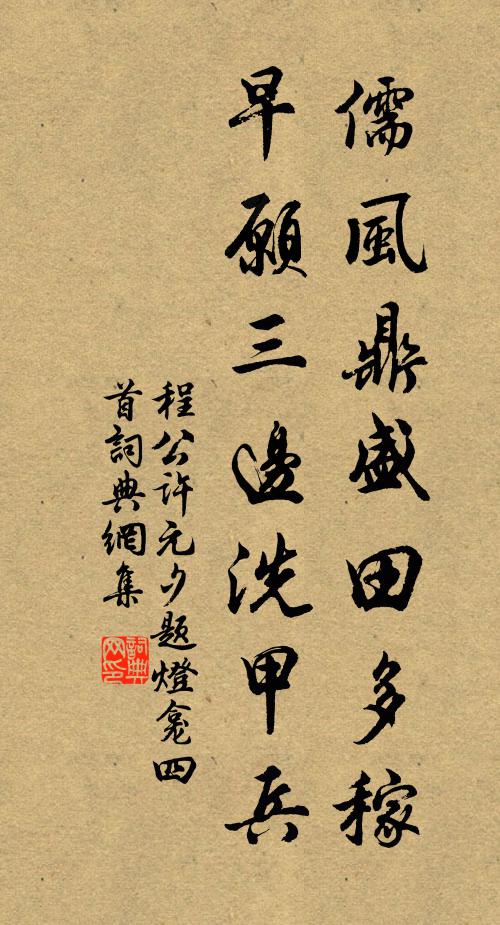 儒風鼎盛田多稼
早願三邊洗甲兵
程公許元夕題燈龕四
首詞典網集
詞典网印